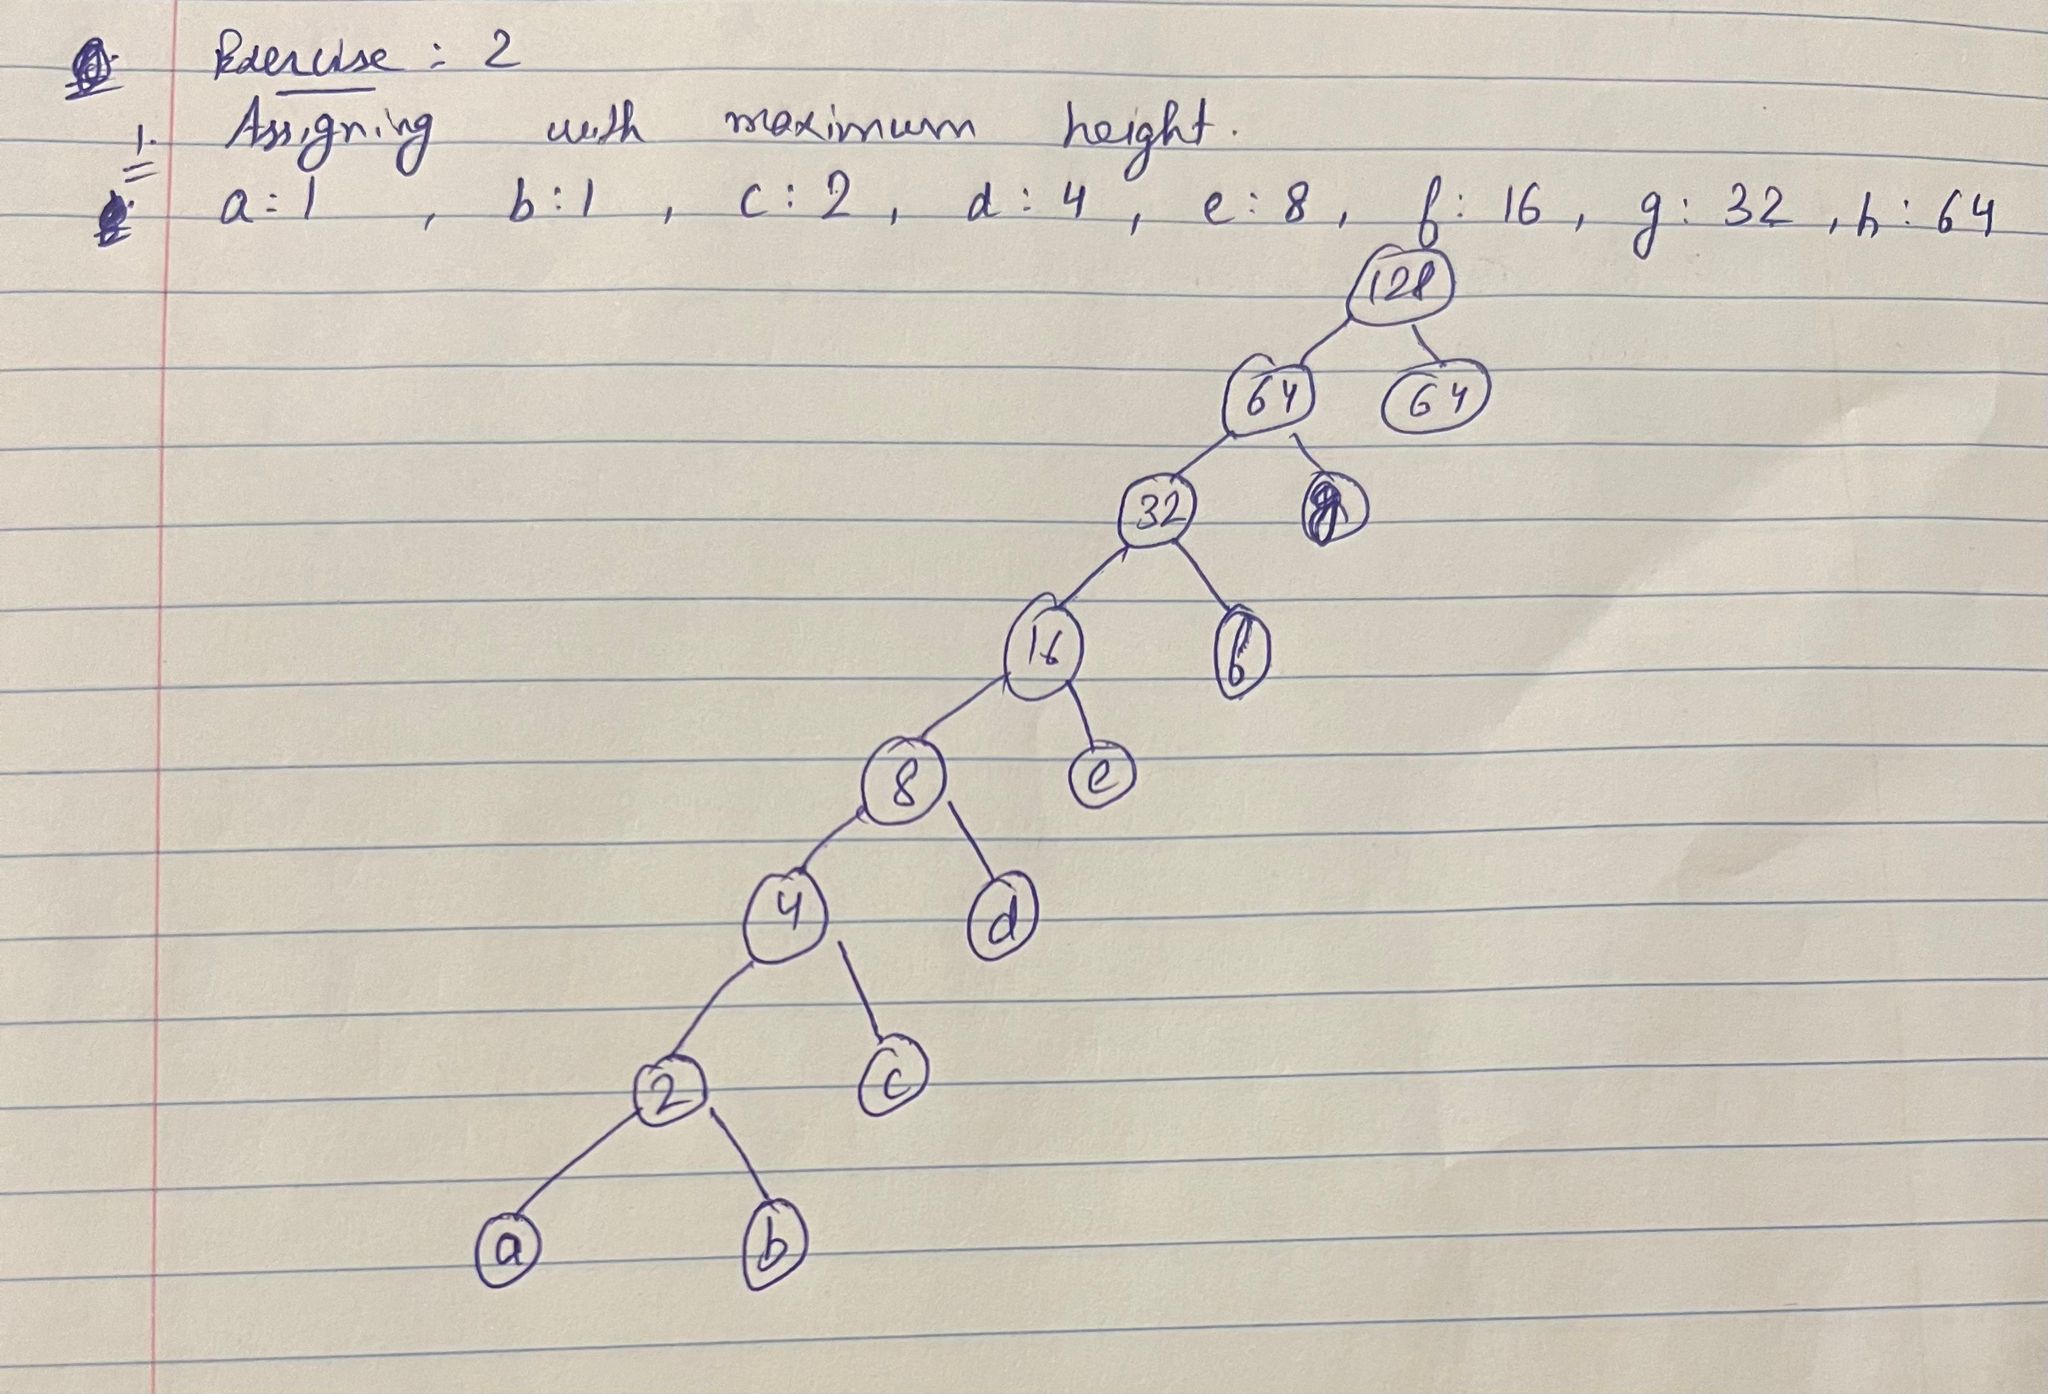 Exercise : 2
1. Assigning with maximum height.
a : 1 , b : 1 , c : 2 , d : 4 , e : 8 , f : 16 , g : 32 , h : 64
128
64 64
32 g
16 f
8 e
4 d
2 c
a b